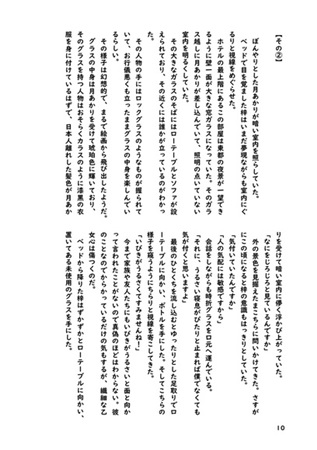 【その②】
　ぼんやりとした月あかりが暗い室内を照らしていた。
　ベッドで目を覚ました梓はいまだ夢現ながらも室内にぐ
るりと視線をめぐらせた。
　ホテルの最上階にあるこの部屋は東都の夜景が一望でき
るように壁一面が大きな窓ガラスになっていた。そのガラ
ス越しに月あかりが差し込んでいて、照明の点いていない
室内を明るくしていた。
　その大きなガラスのそばにはローテーブルとソファが設
えられており、その近くには誰かが立っているのがわかっ
た。
　その人物の手にはロックグラスのようなものが握られて
いて、お行儀悪くも立ったままグラスの中身を楽しんでい
るらしい。
　その様子は幻想的で、まるで絵画から飛び出したようだ。
　グラスの中身は月あかりを受けて琥珀色に輝いており、
そのグラスを持つ人物はおそらくカラスのように漆黒の衣
服を身に付けているはずで、日本人離れした髪色が月あか
りを受けて暗い室内に儚く浮かび上がっていた。
「なにをじろじろと見ているんですか」
　外の景色を見据えたままこちらに問いかけてきた。さすが
にこの頃になると梓の意識もはっきりとしていた。
「気付いていたんですか」
「人の気配には敏感ですから」
　会話をしながらも時折グラスを口元へ運んでいる。
「それに、うるさい寝息がぴたりと止まれば僕でなくても
気が付くと思いますよ」
　最後のひとくちを流し込むとゆったりとした足取りでロ
ーテーブルに向かい、ボトルを手にした。そしてこちらの
様子を窺うようにちらりと視線を寄こしてきた。
「いびきがうるさくてすみませんね！」
　今まで家族や友人たちにもいびきがうるさいと面と向か
って言われたことがないので真偽のほどはわからない。彼
のことなのでからかっているだけの気もするが、繊細な乙
女心は傷つくのだ。
　ベッドから降りた梓はずかずかとローテーブルに向かい、
置いてある未使用のグラスを手にした。
10